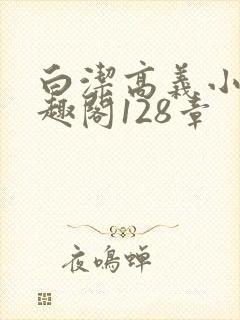 白潔高義小
趣閣128章
夜鳴蝉